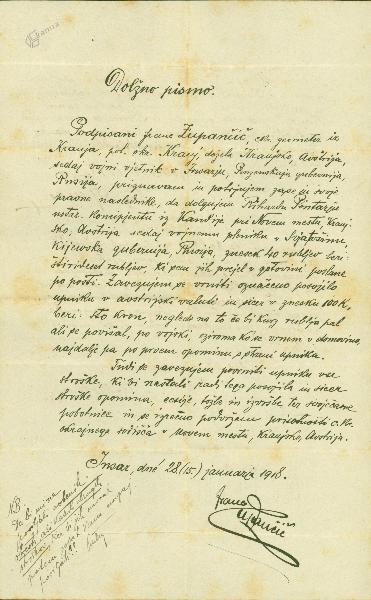 Kamra
Dolžno pismo.
Podpisani Franc Župančič, c.kr. geometer iz
Kranja, pol. okr. Kranj, dežela Kranjsko, Avstrija,
sedaj vojni vjetnik v Insarju, Penzenskaja gubernija,
Rusija, priznavam in potrjujem zase in svoje
pravne naslednike, da dolgujem Rihardu
konceptistu iz Kandije pri Novem mestu, Kranj-
sko, Avstrija sedaj vojnemu plenniku v
Kijevska gubernija, Rusija, znesek 40 rubljev beri:
štirideset rubljev, ki sem jih prejel v gotovini poslane
po pošti. Zavezujem se vrniti označeno posojilo
upniku v avstrijski valuti in sicer v znesku 100 K,
beri: sto kron, neglede na to če bi kurz rublja pal
ali se povišal, po vojski, oziroma ko se vrnem v domovino,
najdalje pa po prvem opominu, s strani upnika.
Tudi se zavezujem povrniti upniku vse
stroške, ki bi nastali radi tega posojila in sicer
stroške opomina, cesije, tožbe in izvršbe ter
pobotnice in se izrečno podvržem pristojnosti c. kr.
okrajnega sodišča v Novem mestu, Kranjsko, Avstrija.
Insar, dne 28.(15.) januarja 1918.
Franc
Župančič
NB